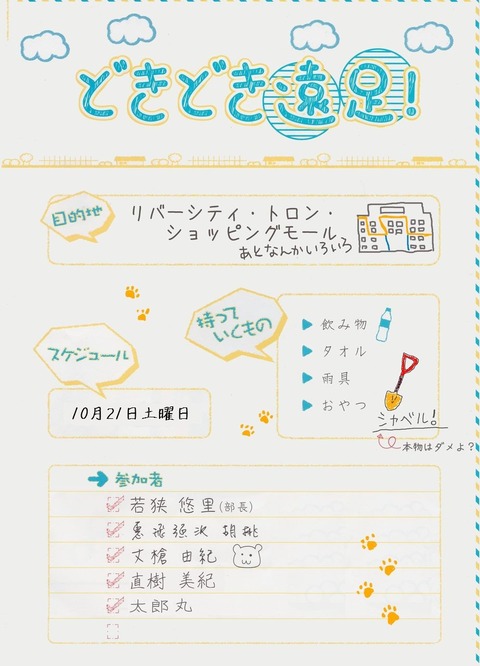 どきどき遠足!
目的地
リバーシティ・トロン・
ショッピングモール
あとなんかいろいろ
持って
いくもの
飲み物
タオル
雨具
おやつ
シャベル!
本物はダメよ?
スケジュール
10月21日土曜日
参加者
若狭 悠里(部長)
恵飛須沢 胡桃
丈槍 由紀
直樹 美紀
太郎丸